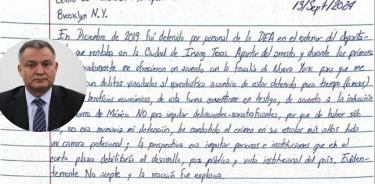 13/Sept/2024
Brooklyn N.Y.
En Diciembre de 2019 fui detenido por personal de la DEA en el exterior del departa-
que rentaba en la Ciudad de Irving Texas. Aparte del arresto y durante los primeros
me ofrecieron un acuerdo con la fiscalía de Nueva York para que me
en delitos vinculados al narcotráfico a cambio de estar detenido poco tiempo (6 meses)
beneficios económicos, de esta forma convertirme en testigo, de acuerdo a la
de México NO por imputar delincuentes-narcotraficantes, que de haber sido
no era necesaria mi detención, he combatido el crimen en su escala más alta toda
mi carrera profesional; la perspectiva era imputar personas e instituciones que en el
corto plazo debilitaría el desarrollo, paz pública y vida institucional del país. Eviden-
temente No acepté y la reacción fue explosiva.